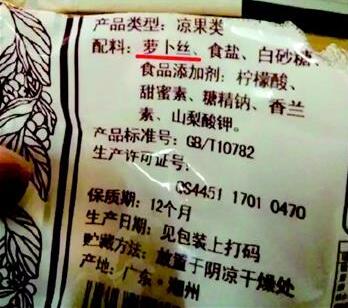 产品类型: 凉果类
配料: 萝卜丝、食盐、白砂糖、
食品添加剂: 柠檬酸、
甜蜜素、糖精钠、香兰
素、山梨酸钾。
产品标准号: GB/T10782
生产许可证号:
QS4451 1701 0470
保质期: 12个月
生产日期: 见包装上打码
贮藏方法: 放置于阴凉干燥处
产地: 广东·潮州